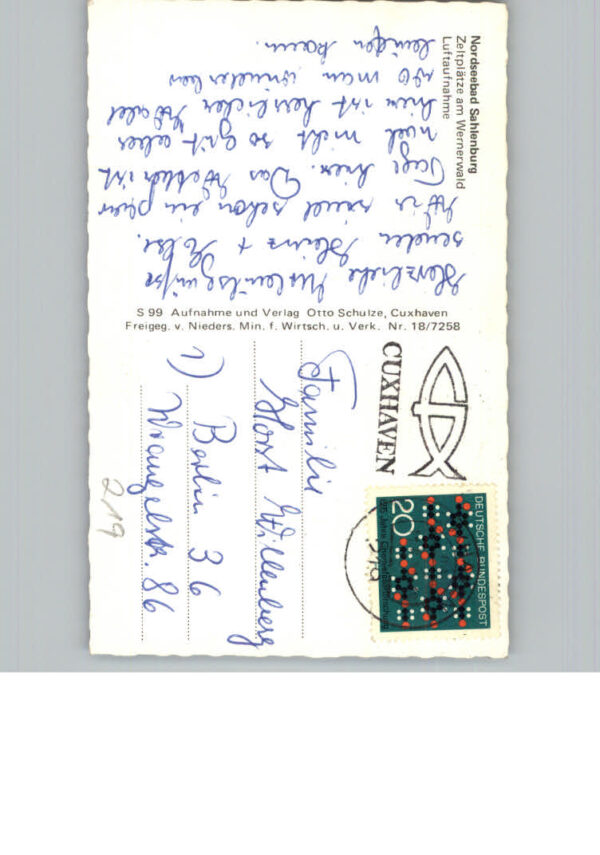 Nordseebad Sahlenburg
Zeltplätze am Wernerwald
Luftaufnahme
Herzliche Urlaubsgrüße
senden Heinz +
Wir sind schon ein paar
Tage hier. Das Wetter ist
nicht so gut aber
hier ist herrlicher Wald
wo man wunderbar
kann.
S 99 Aufnahme und Verlag Otto Schulze, Cuxhaven
Freigeg. v. Nieders. Min. f. Wirtsch. u. Verk. Nr. 18/7258
CUXHAVEN
DEUTSCHE BUNDESPOST
20
Familie
Horst Willenberg
1) Berlin 36
Wrangelstr. 86
219